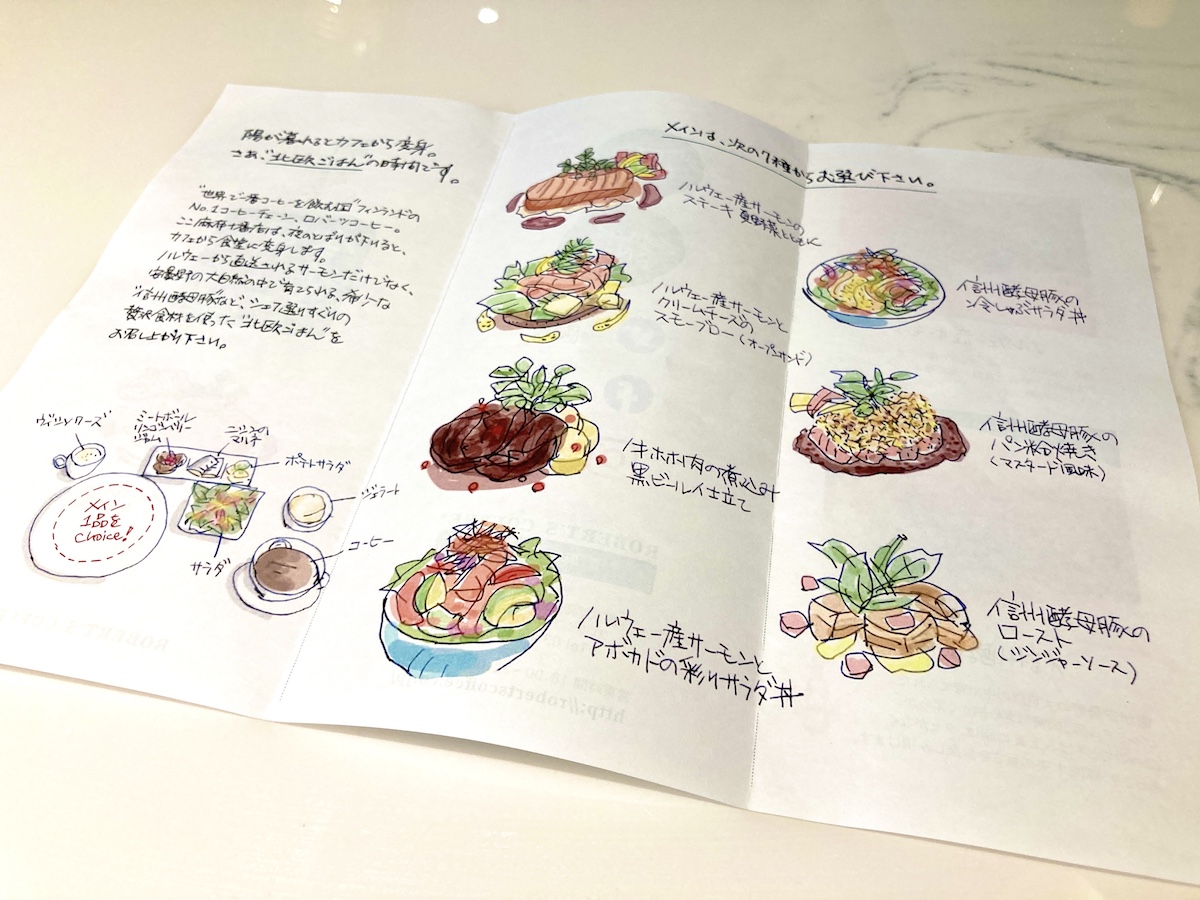 陽が暮れるとカフェから変身。
さあ、"北欧ごはん"の時間です。
"世界で一番コーヒーを飲む国"フィンランドの
No.1コーヒーチェーン、ロバーツコーヒー。
ここ麻布十番店は、夜のとばりが下りると、
カフェから食堂に変身します。
ノルウェーから直送されるサーモンだけでなく、
安曇野の大自然の中で育てられる、希少な
"信州酵母豚"など、シェフ選りすぐりの
贅沢食材を使った"北欧ごはん"を
お召し上がり下さい。
ミートボール
リンゴンベリー
ジャム
ニシンの
マリネ
ポテトサラダ
ジェラート
コーヒー
サラダ
メイン
1品を
choice!
メインは、次の7種からお選び下さい。
ノルウェー産サーモンの
ステーキ 夏野菜とともに
ノルウェー産サーモンと
クリームチーズの
スモーブロー(オープンサンド)
牛ホホ肉の煮込み
黒ビール仕立て
ノルウェー産サーモンと
アボカドの彩りサラダ丼
信州酵母豚の
冷しゃぶサラダ丼
信州酵母豚の
パン粉焼き
(マスタード風味)
信州酵母豚の
ロースト
(ジンジャーソース)